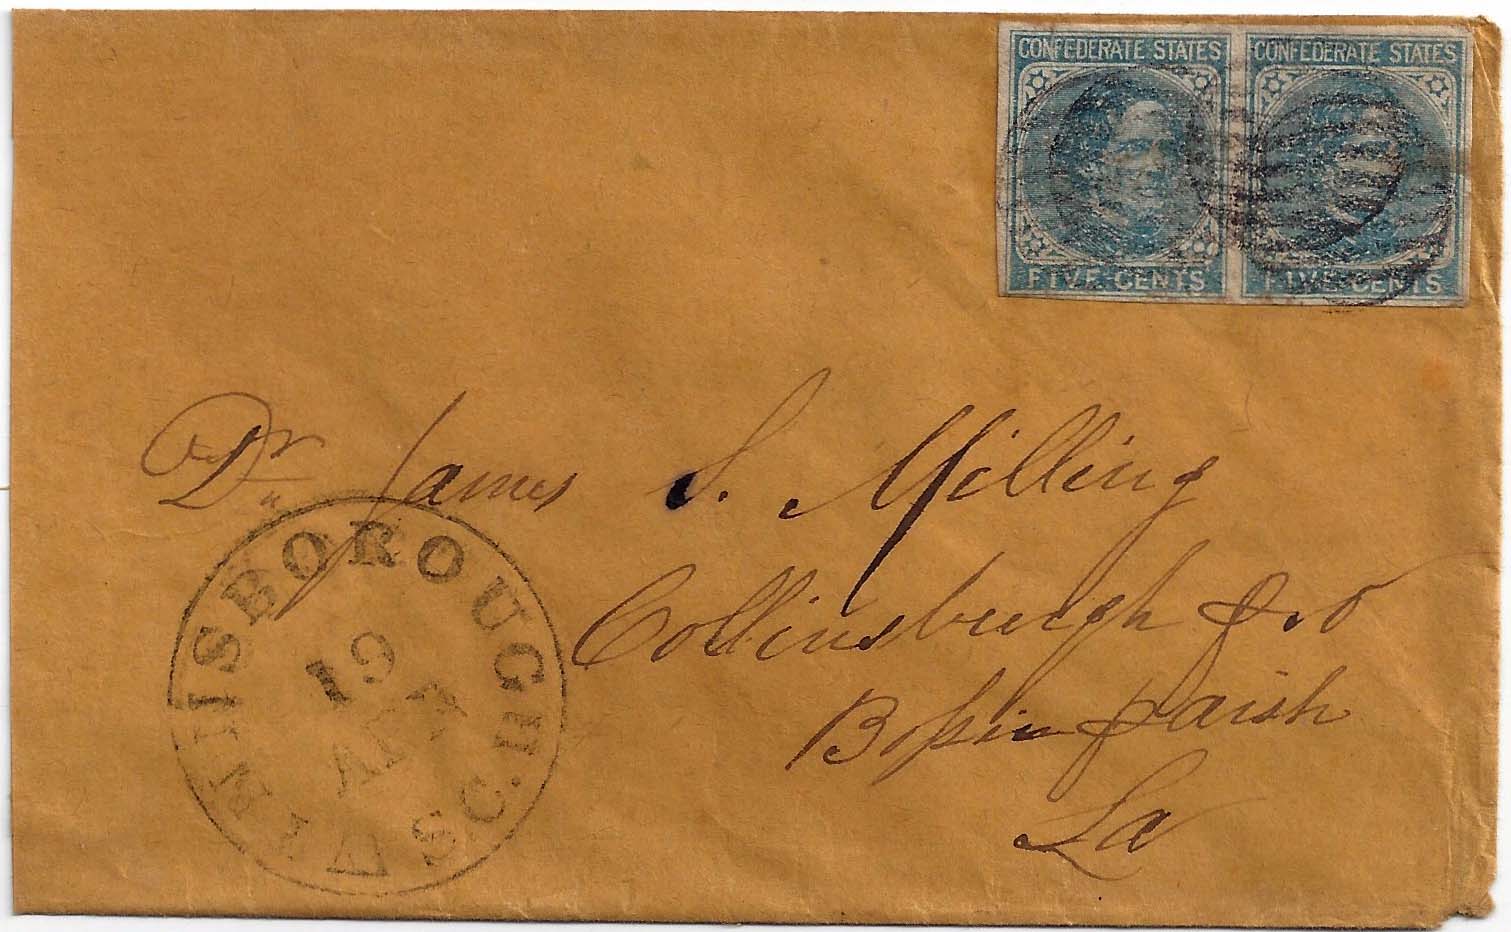 CONFEDERATE STATES
FIVE CENTS
CONFEDERATE STATES
FIVE CENTS
Dr James S. Milling
Collinsburgh P.O
Bossier Parish
La
WINNSBOROUGH S.C.
19
APR